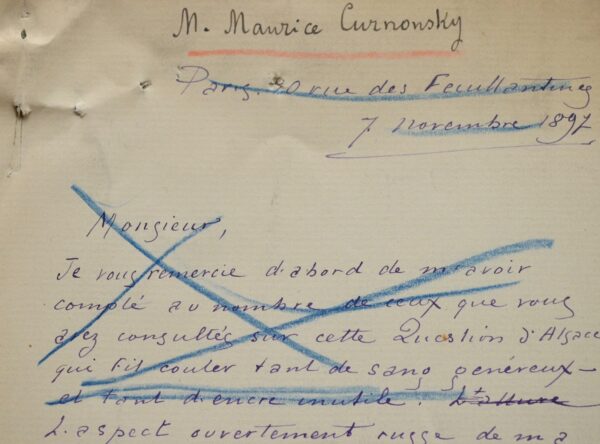 M. Maurice Curnonsky
Paris. 10 rue des Feuillantines
7 novembre 1897
Monsieur,
Je vous remercie d'abord de m'avoir
compté au nombre de ceux que vous
avez consultés sur cette Question d'Alsace
qui fit couler tant de sang généreux -
et tant d'encre inutile. L'allure
L'aspect ouvertement russe de ma